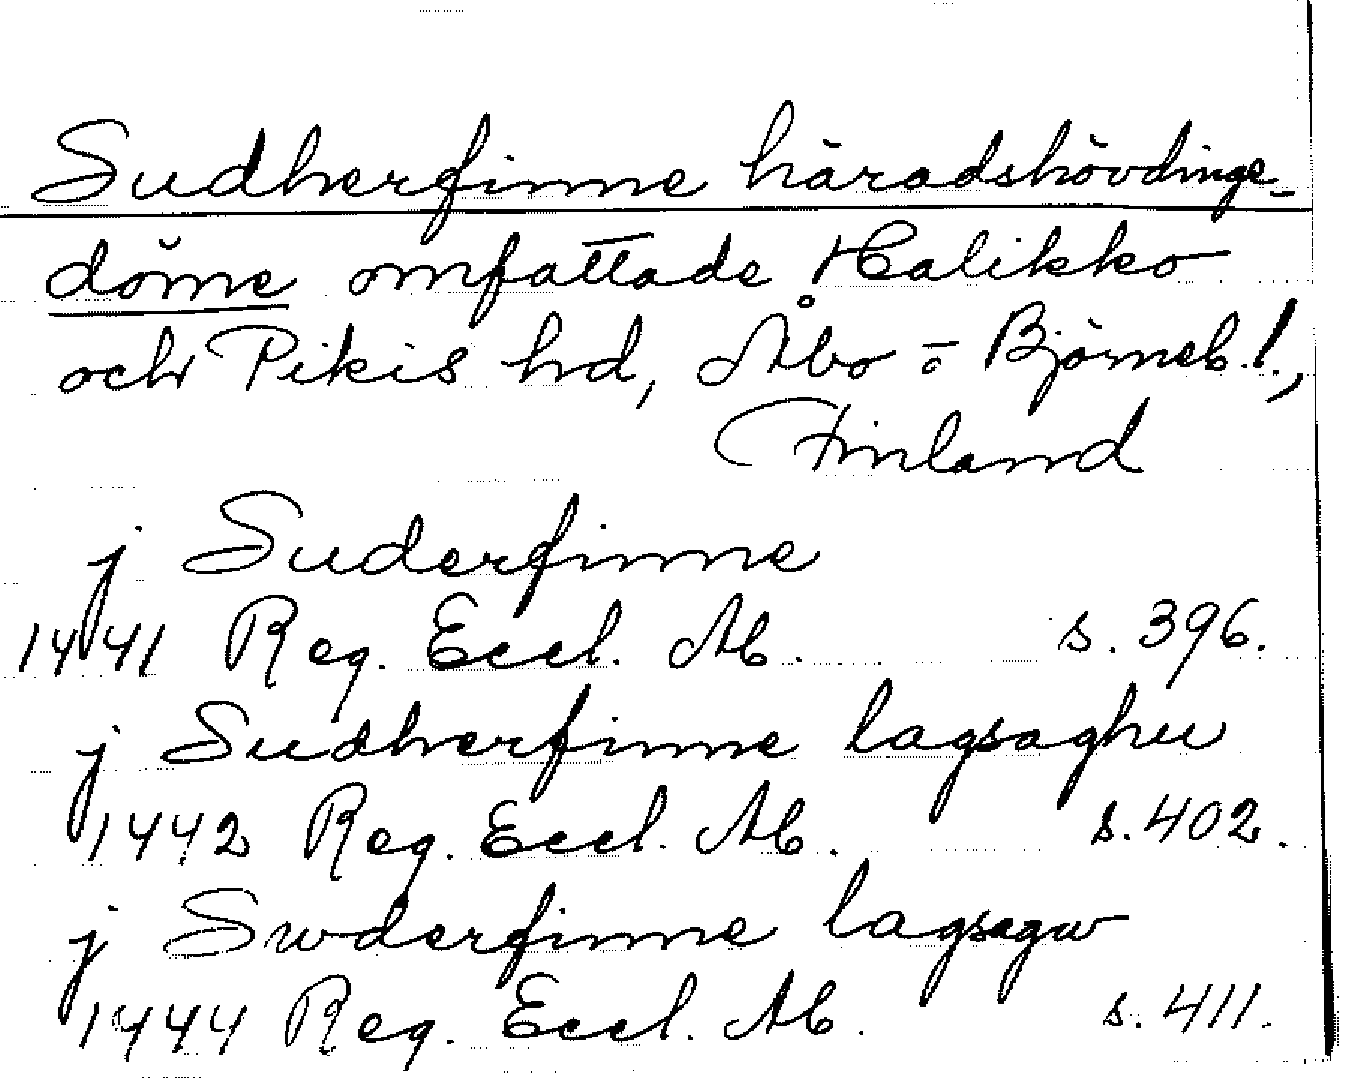 Sudherfinne häradshövdinge-
döme omfattade Halikko
och Pikis hd, Åbo o Björneb. l.,
Finland
j Suderfinne
1441 Reg. Eccl. Ab. s. 396.
j Sudherfinne lagsaghu
1442 Reg. Eccl. Ab. s. 402.
j Swderfinne lagsagw
1444 Reg. Eccl. Ab. s. 411.